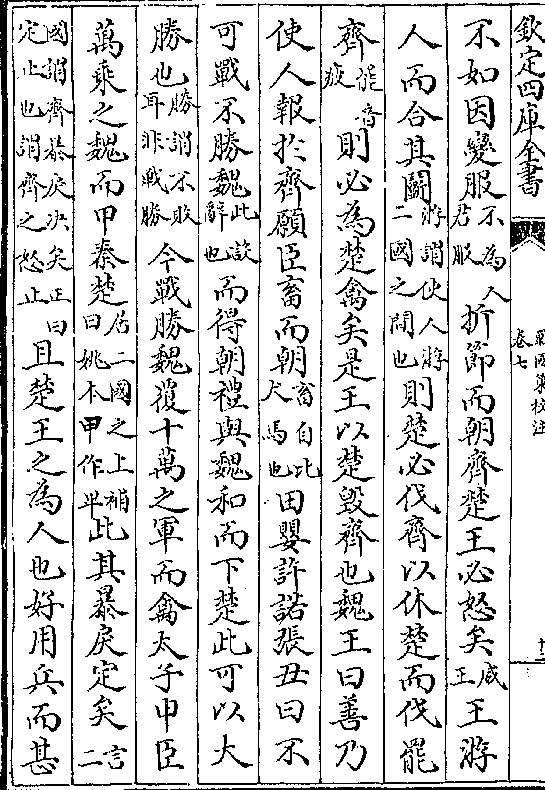 欽定四庫全書
戰國策校注
卷七
不如因變服不為人君服折節而朝齊楚王必怒矣威王王游
人而合其鬭游謂使人游二國之間也則楚必伐齊以休楚而伐罷
齊罷音疲則必為楚禽矣是王以楚毀齊也魏王曰善乃
使人報於齊願臣畜而朝畜自比犬馬也田嬰許諾張丑曰不
可戰不勝魏此設辭也而得朝禮與魏和而下楚此可以大
勝也勝謂不敗耳非戰勝今戰勝魏覆十萬之軍而禽太子申臣
萬乘之魏而甲秦楚居二國之上補曰姚本甲作卑此其暴戾定矣言二
國謂齊暴戾決矣正曰定止也謂齊之怒止且楚王之為人也好用兵而甚